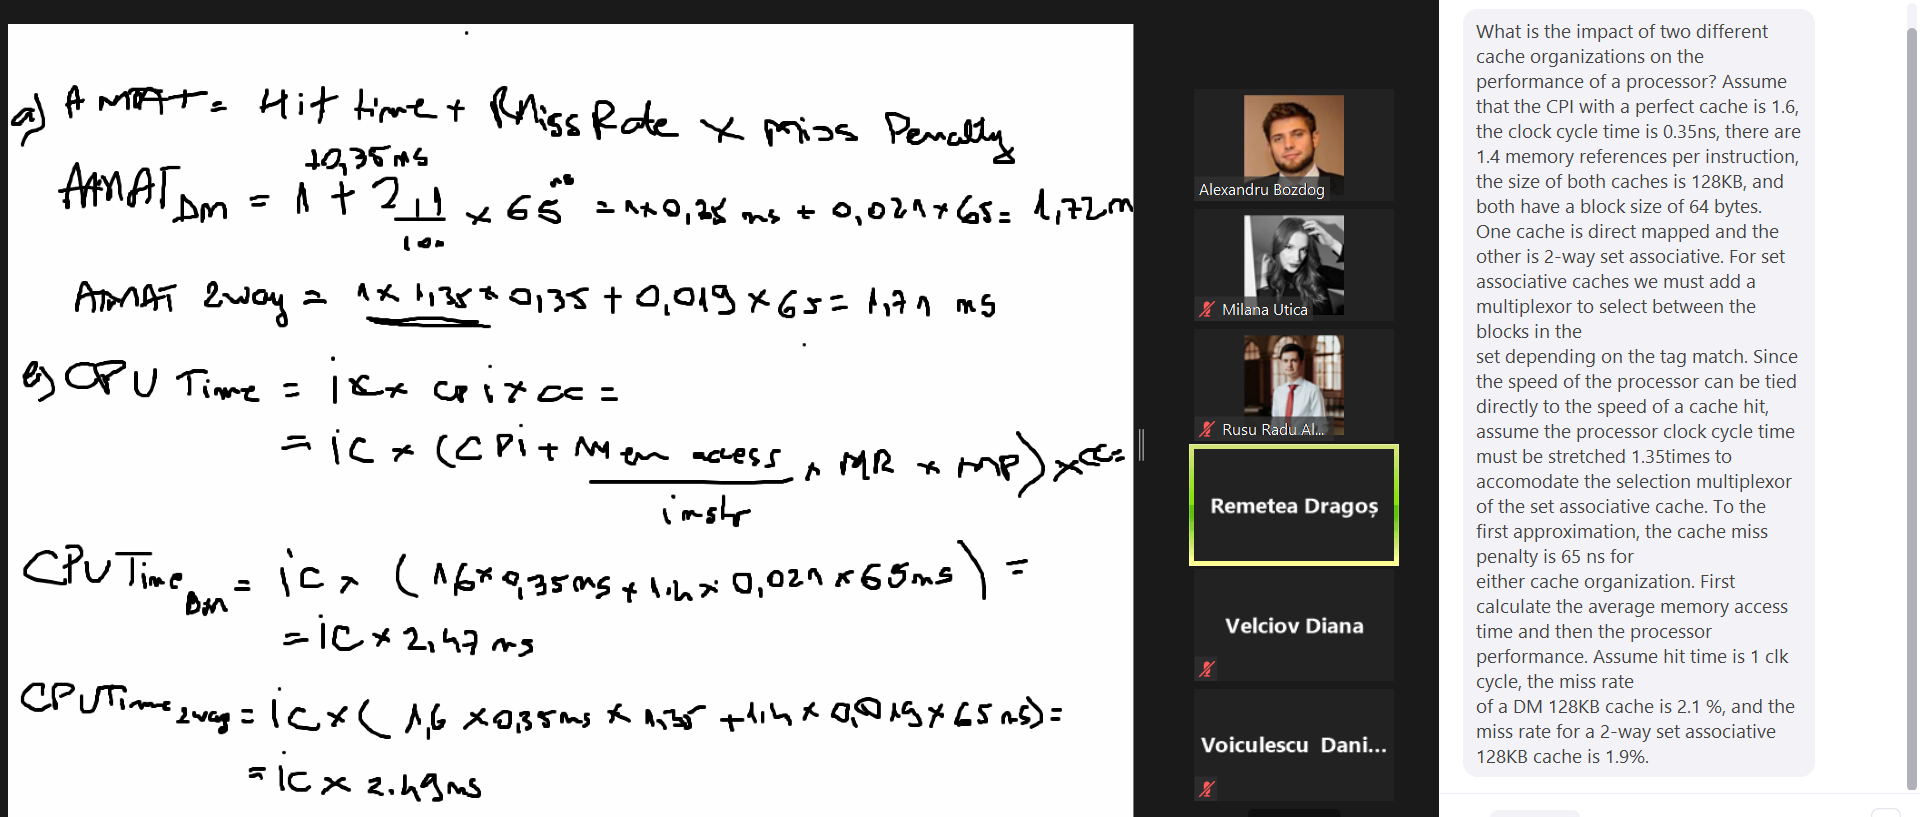 a) AMAT = Hit time + Miss Rate x miss Penalty
10,35 ns
AMAT DM = 1 + 2,1/100 x 65 ns = 1x0,35 ns + 0,021 x 65 = 1,72 n
AMAT 2way = 1 x 1,35 x 0,35 + 0,019 x 65 = 1,71 ns
b) CPU Time = ic x cpi x cc =
= ic x (CPi + Mem access / instr x MR x MP) x cc =
CPU Time DM = ic x (1,6 x 0,35 ns + 1.4 x 0,021 x 65 ns) =
= ic x 2,47 ns
CPUTime 2way = ic x (1,6 x 0,35 ns x 1,35 + 1.4 x 0,019 x 65 ns) =
= ic x 2.49 ns
Alexandru Bozdog
Milana Utica
Rusu Radu Al...
Remetea Dragoș
Velciov Diana
Voiculescu Dani...
What is the impact of two different
cache organizations on the
performance of a processor? Assume
that the CPI with a perfect cache is 1.6,
the clock cycle time is 0.35ns, there are
1.4 memory references per instruction,
the size of both caches is 128KB, and
both have a block size of 64 bytes.
One cache is direct mapped and the
other is 2-way set associative. For set
associative caches we must add a
multiplexor to select between the
blocks in the
set depending on the tag match. Since
the speed of the processor can be tied
directly to the speed of a cache hit,
assume the processor clock cycle time
must be stretched 1.35times to
accomodate the selection multiplexor
of the set associative cache. To the
first approximation, the cache miss
penalty is 65 ns for
either cache organization. First
calculate the average memory access
time and then the processor
performance. Assume hit time is 1 clk
cycle, the miss rate
of a DM 128KB cache is 2.1 %, and the
miss rate for a 2-way set associative
128KB cache is 1.9%.